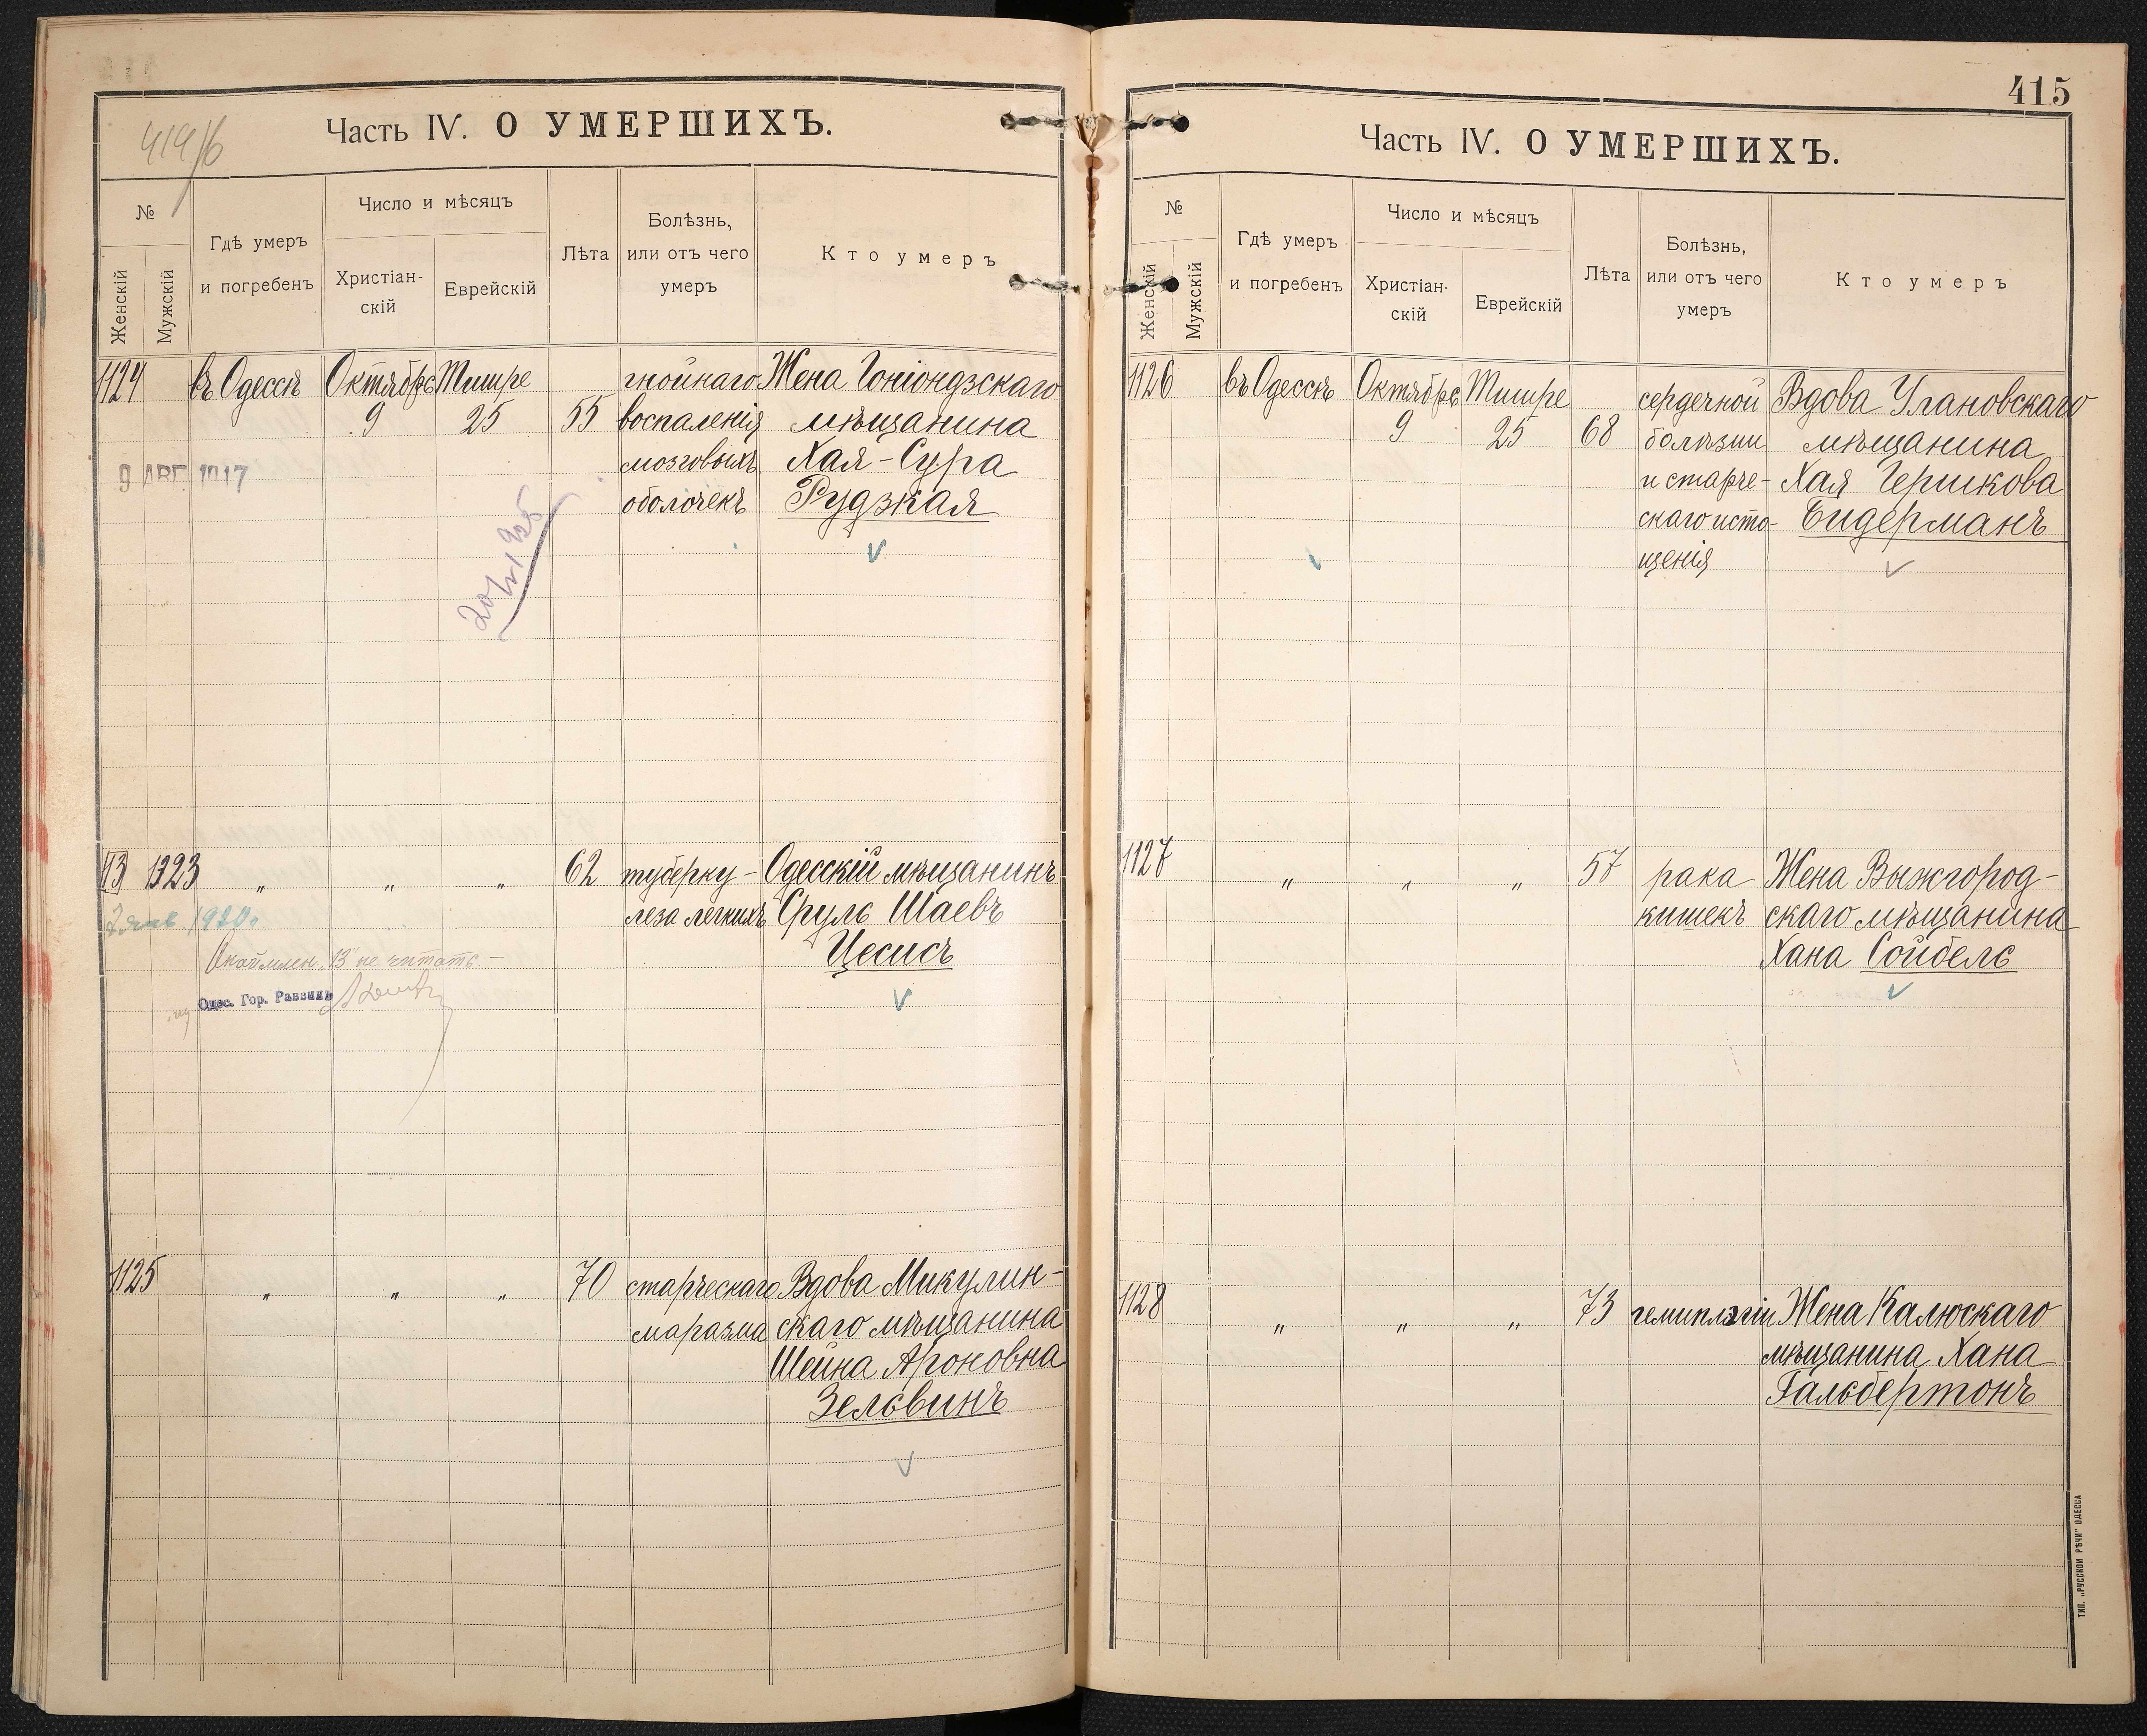 Часть IV. О УМЕРШИХЪ.
№
Женскій
Мужскій
Гдѣ умеръ
и погребенъ
Число и мѣсяцъ
Христіан-
скій
Еврейскій
Лѣта
Болѣзнь,
или отъ чего
умеръ
Кто умеръ
1124 въ Одессѣ Октябрь Тишре гнойнаго Жена Гоніондзскаго
9 25 55 воспаленія мѣщанина
9 АВГ 1917 мозговыхъ Хая-Сура
оболочекъ Рудзкая
13 1323 " " " 62 туберку- Одесскій мѣщанинъ
1920 леза легкихъ Сруль Шаевъ
13 не читать.- Цесисъ
Одес. Гор. Раввинъ
1125 " " " 70 старческаго Вдова Микулин-
маразма скаго мѣщанина
Шейна Ароновна
Зельвинъ
415
Часть IV. О УМЕРШИХЪ.
№
Женскій
Мужскій
Гдѣ умеръ
и погребенъ
Число и мѣсяцъ
Христіан-
скій
Еврейскій
Лѣта
Болѣзнь,
или отъ чего
умеръ
Кто умеръ
1126 въ Одессѣ Октябрь Тишре сердечной Вдова Улановскаго
9 25 68 болѣзни мѣщанина
и старче- Хая Гершкова
скаго исто- Бидерманъ
щенія
1127 " " " 57 рака Жена Выжгород-
кишекъ скаго мѣщанина
Хана Сойбель
1128 " " " 73 гемиплэгіи Жена Калюскаго
мѣщанина Хана
Гальбертонъ
ТИП. „РУССКОЙ РѢЧИ" ОДЕССА